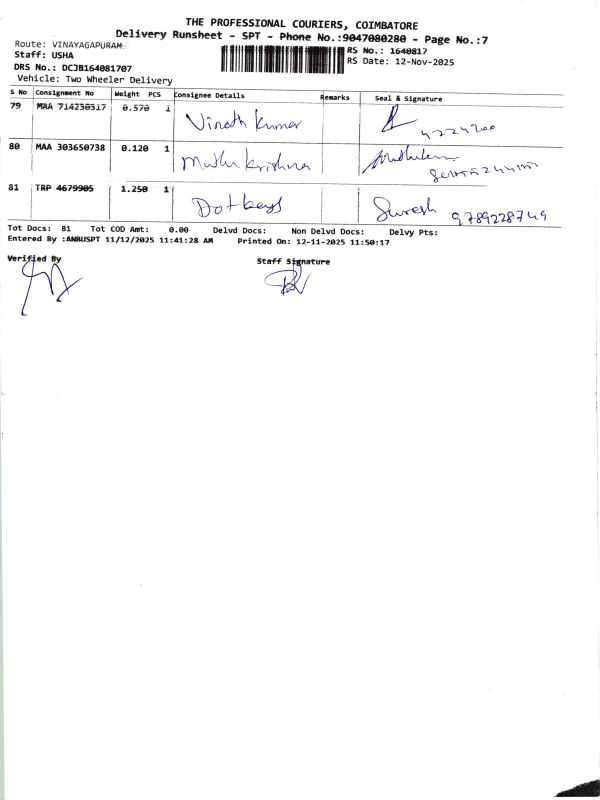 THE PROFESSIONAL COURIERS, COIMBATORE
Delivery Runsheet - SPT - Phone No.:9047080280 - Page No.:7
Route: VINAYAGAPURAM
Staff: USHA
DRS No.: DCJB164081707
Vehicle: Two Wheeler Delivery
RS No.: 1640817
RS Date: 12-Nov-2025
S No Consignment No Weight PCS Consignee Details Remarks Seal & Signature
79 MAA 714230317 0.570 1 Vinoth Kumar
80 MAA 303650738 0.120 1 Muthu Krishna
81 TRP 4679905 1.250 1 Dot beys Suresh 9789228749
Tot Docs: 81 Tot COD Amt: 0.00 Delvd Docs: Non Delvd Docs: Delvy Pts:
Entered By :ANBUSPT 11/12/2025 11:41:28 AM Printed On: 12-11-2025 11:50:17
Verified By Staff Signature